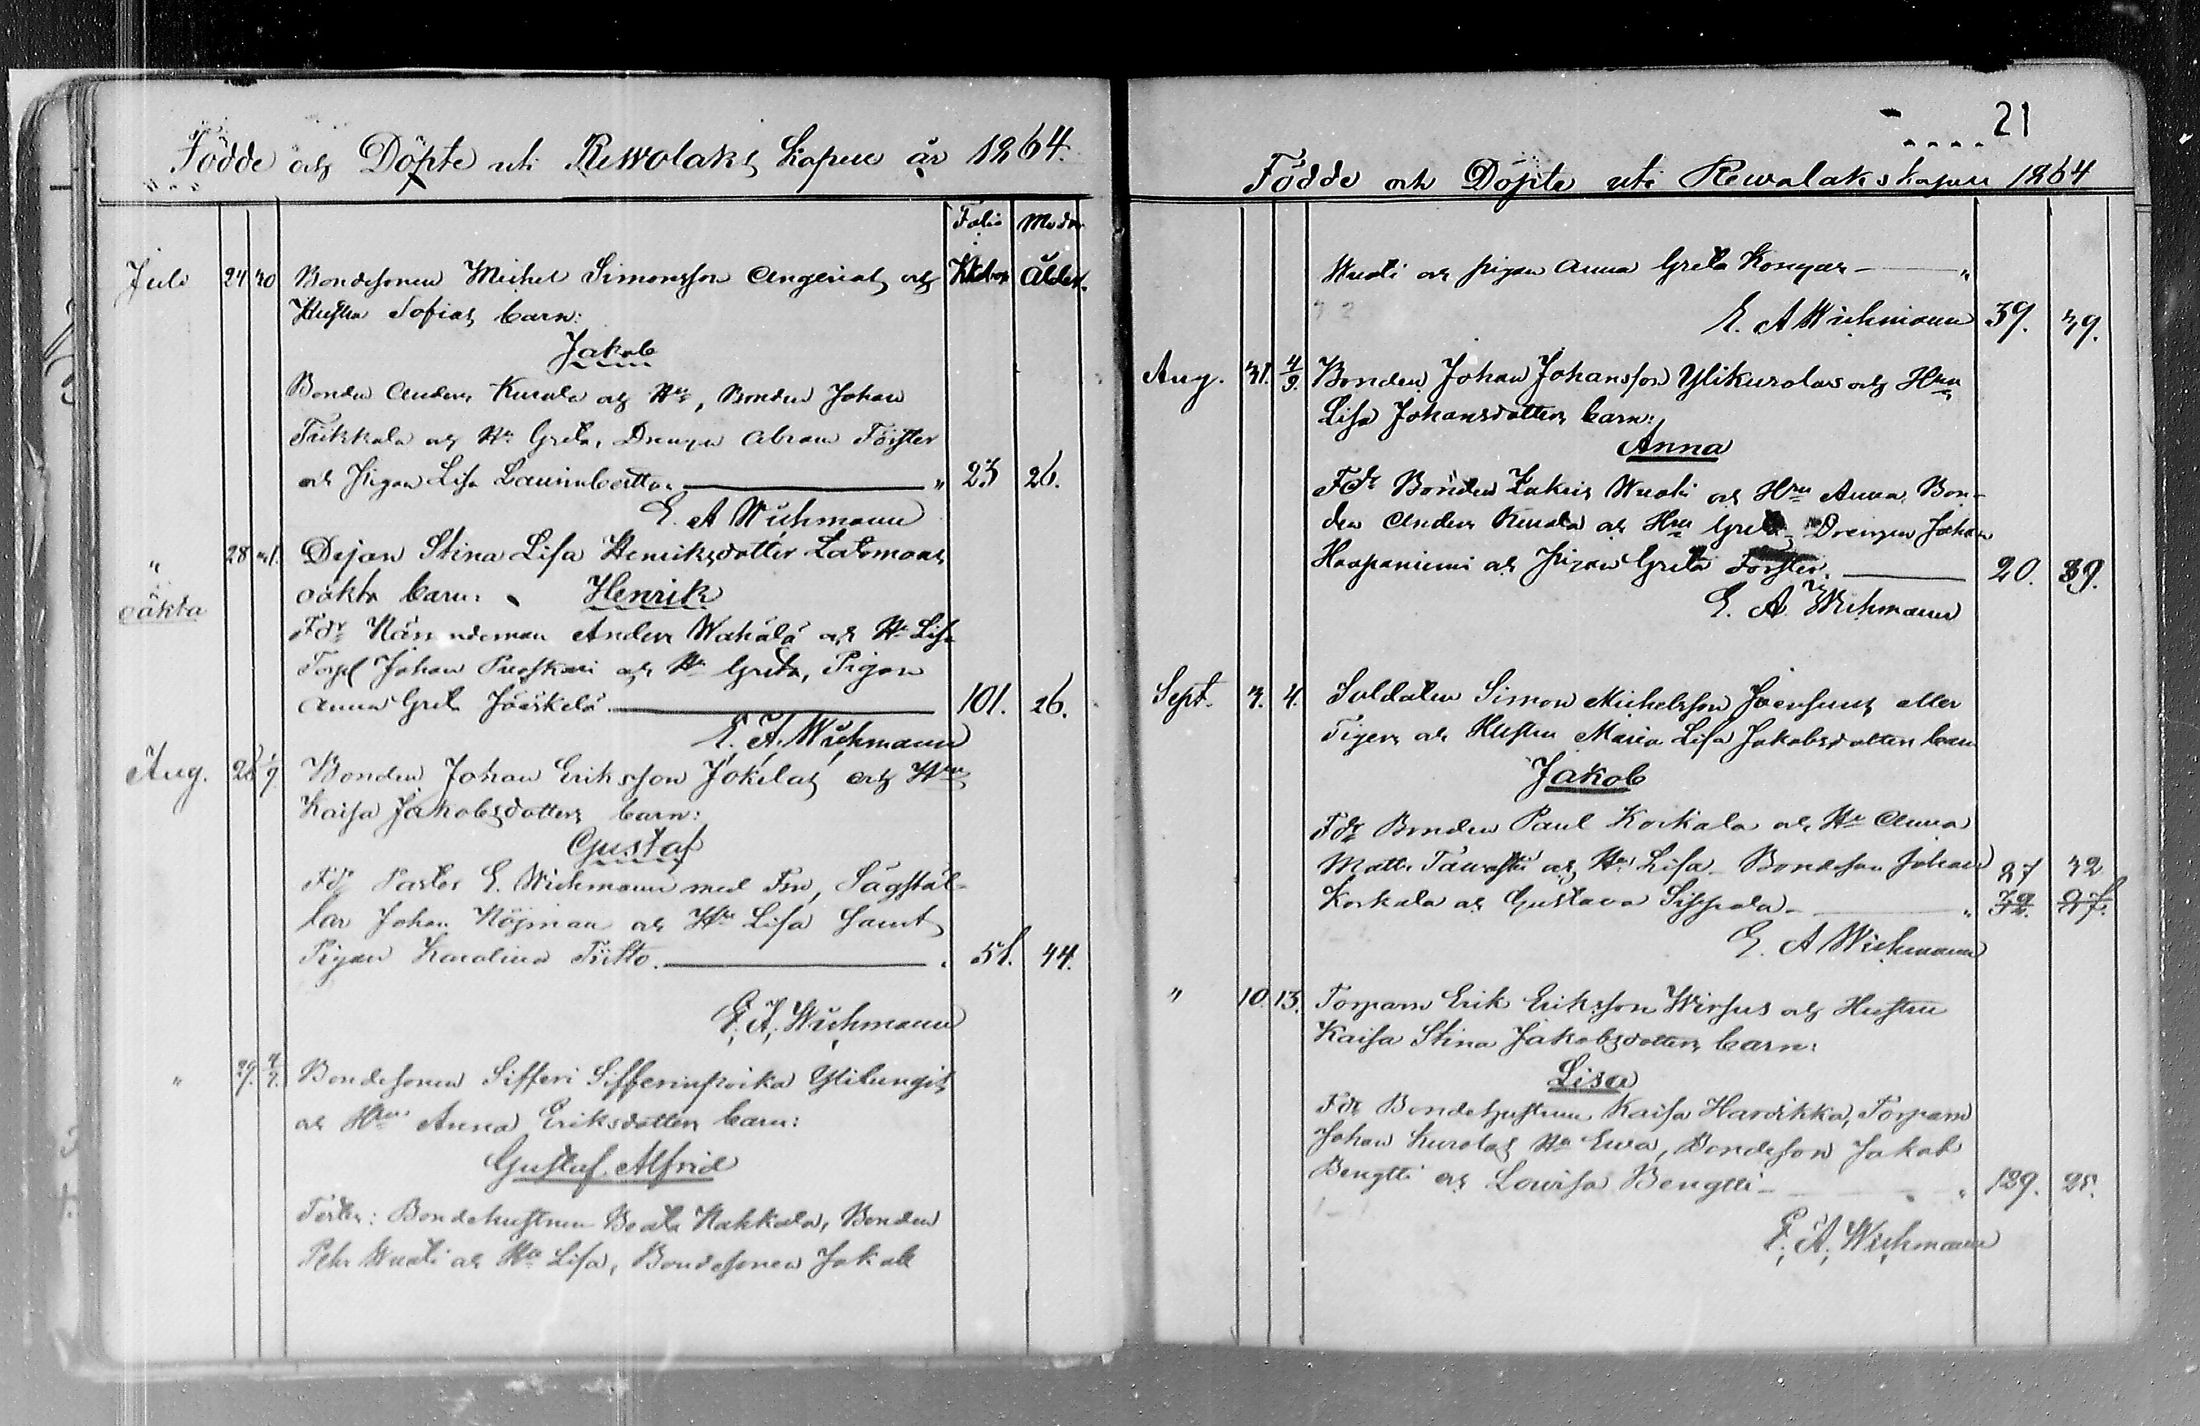 Födde och Döpte uti Rewolaks Kapell år 1864.
Folio Moder
Juli 24 30 Bondesonen Michel Simonsson Angerias och Kkbon Ålder.
Hustru Sofias barn:
Jakob
Bonden Anders Kurola och Hu, Bonden Johan
Tuikkala och Hu Greta, Drengen Abram Förster
och Pigan Lisa Lauinbcitto 23 26.
E. A Wichmann
" 28 31. Dejan Stina Lisa Henriksdotter Latomaas
oäkta oäkta barn: Henrik
Fdr Nämndeman Anders Wähälä och Hu Lisa
Torp Johan Puoskari och Hu Greta, Pigan
Anna Greta Jääskelä 101. 26.
E. A. Wichmann
Aug. 28 1/9 Bonden Johan Eriksson Jokelas och Hus
Kaisa Jakobsdotters barn:
Gustaf
Fdr Pastor E. Wichmann med Fru, Sågstäl-
lar Johan Nöjman och Hu Lisa samt
Pigan Karolina Tiitto. 51. 44.
E. A. Wichmann
" 29. 4/9. Bondesonen Sifferi Sifferinpoika Ylilungis
och Hus Anna Eriksdotters barn:
Gustaf Alfrid
Fadder: Bondehustrun Beata Hakkala, Bonden
Pehr Wuoti och Hu Lisa, Bondesonen Jakob
21
Födde och Döpte uti Rewolaks kapell 1864
Wuoti och pigan Anna Greta Kongas "
E. A Wichmann 39. 39.
Aug. 31. 4/9. Bonden Johan Johansson Ylikurolas och Hus
Lisa Johansdotters barn:
Anna
Fdr Bonden Zakris Wuoti och Hru Anna, Bon-
den Anders Kurola och Hru Greta Drengen Johan
Haapaniemi och Pigan Greta Förster. 20. 39.
E. A. Wichmann
Sept. 3. 4. Soldaten Simon Michelsson Joensuus eller
Tigers och Hustru Maria Lisa Jakobsdotters barn
Jakob
Fdr Bonden Paul Korkala och Hu Anna
Matts Tawasti och Hu Lisa Bondeson Johan 27 32
Korkala och Gustava Sippola "
E. A Wichmann
" 10. 13. Torparn Erik Eriksson Wirsus och Hustru
Kaisa Stina Jakobsdotters barn:
Lisa
Fdr Bondehustrun Kaisa Harsikka, Torparn
Johan Kurolas Hu Ewa, Bondeson Jakob
Bengtti och Lowisa Bengtti " 129. 25.
E. A. Wichmann